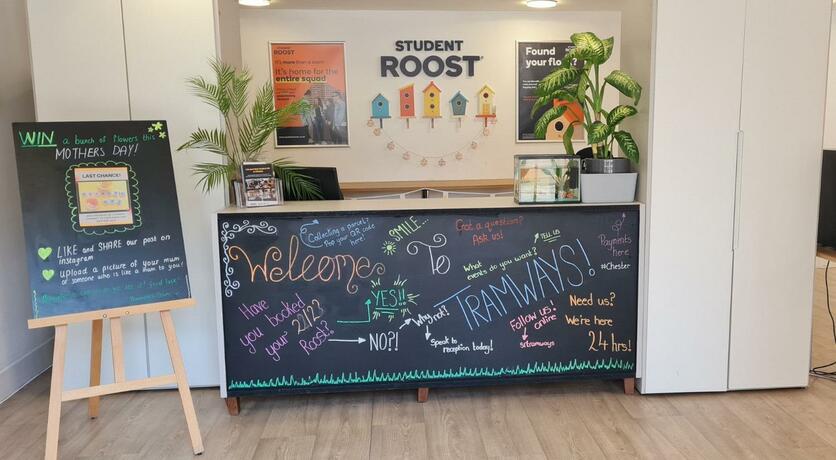 STUDENT
ROOST
STUDENT
ROOST
It's more than a room
It's home for the
entire squad
Found
your flo
WIN a bunch of flowers this
MOTHERS DAY!
LAST CHANCE!
LIKE and SHARE our post on
instagram
UPLOAD a picture of your mum
of someone who is like a mum to you!
Collecting a parcel?
Pop your QR code
here!
SMILE...
Got a question?
Ask us!
Welcome
To
TRAMWAYS!
What
events do you want?
TELL US
Payments
here
#Chester
Have
you booked
your 22/23
Roost?
YES!!
NO?!
Why not!
Speak to
reception today!
Follow us
online
srtramways
Need us?
We're here
24 hrs!